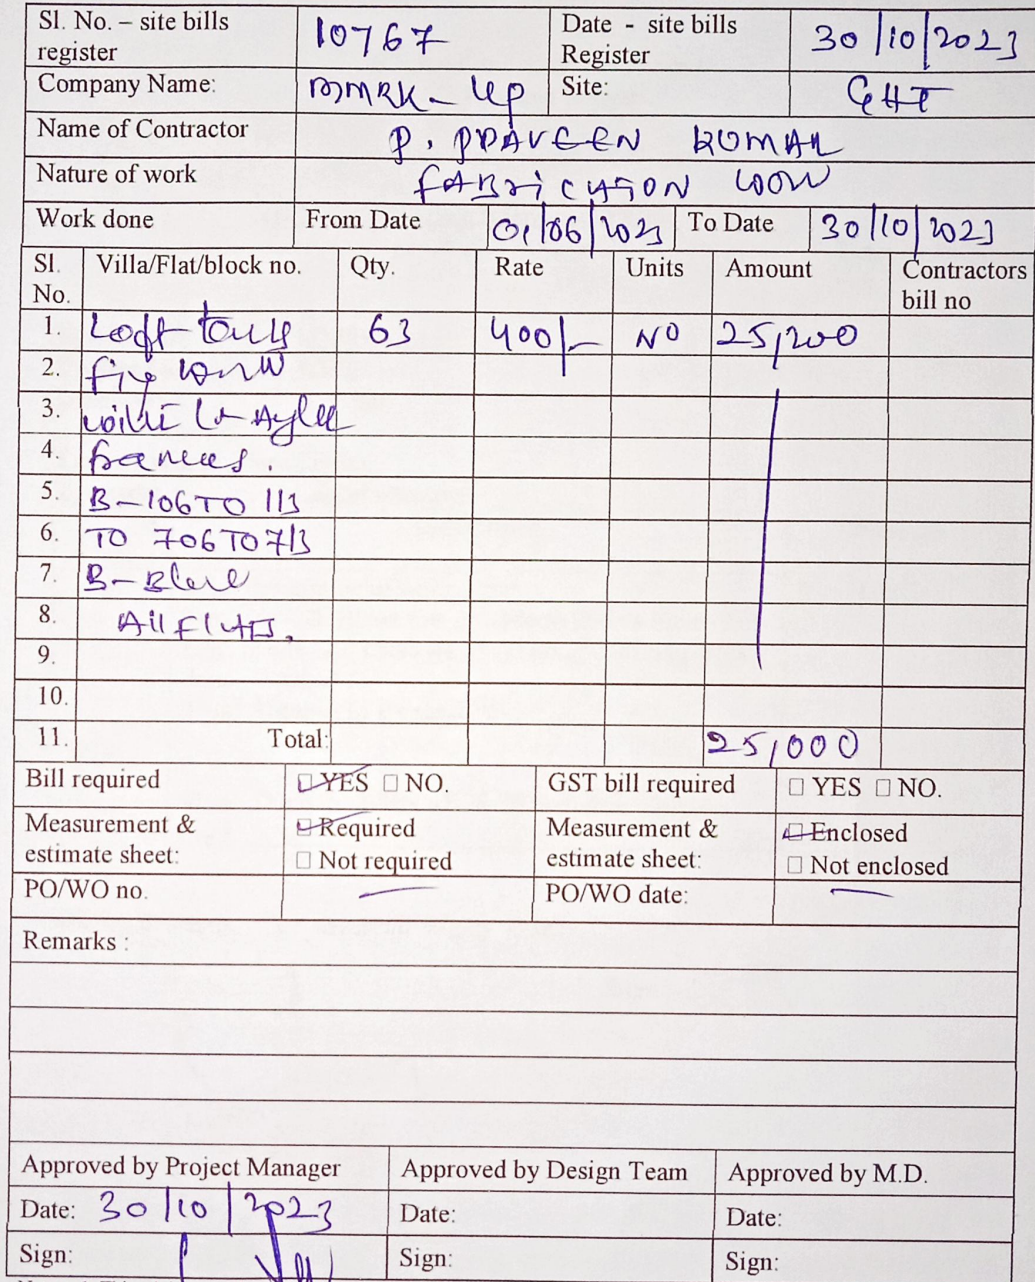 Sl. No. – site bills register 10767 Date - site bills Register 30/10/2023
Company Name: Site: GHT
Name of Contractor P. PRAVEEN KUMAR
Nature of work FABRICATION WORK
Work done From Date 01/06/2023 To Date 30/10/2023
Sl. No. Villa/Flat/block no. Qty. Rate Units Amount Contractors bill no
1. Loft 63 400/- NO 25,200
2.
3.
4. frames.
5. B-106 TO 113
6. TO 706 TO 713
7. B-
8. All Flats.
9.
10.
11. Total: 25,000
Bill required YES NO. GST bill required YES NO.
Measurement & estimate sheet: Required Not required Measurement & estimate sheet: Enclosed Not enclosed
PO/WO no. — PO/WO date: —
Remarks :
Approved by Project Manager Approved by Design Team Approved by M.D.
Date: 30/10/2023 Date: Date:
Sign: Sign: Sign: